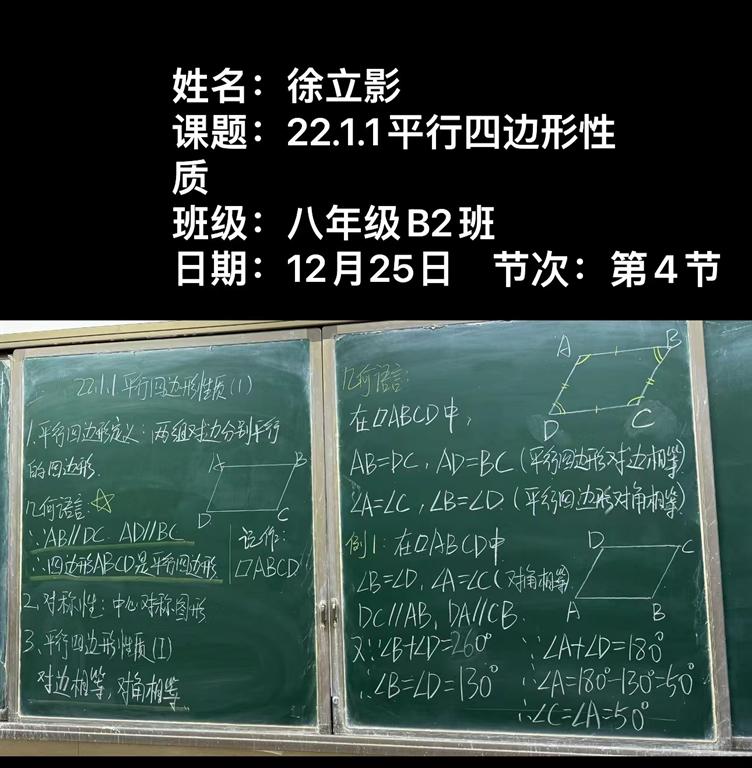 姓名：徐立影
课题：22.1.1平行四边形性
质
班级：八年级B2班
日期：12月25日 节次：第4节
22.1.1 平行四边形性质(1)
1.平行四边形定义：两组对边分别平行
的四边形.
A B
D C
几何语言：☆
∵AB//DC AD//BC
∴四边形ABCD是平行四边形
记作：
▱ABCD
2.对称性：中心对称图形
3.平行四边形性质(I)
对边相等，对角相等
几何语言：
A B
D C
在▱ABCD中，
AB=DC，AD=BC（平行四边形对边相等）
∠A=∠C，∠B=∠D（平行四边形对角相等）
例1：在▱ABCD中
D C
A B
∠B=∠D，∠A=∠C（对角相等）
DC//AB，DA//CB.
又∵∠B+∠D=260°
∴∠B=∠D=130°
∵∠A+∠D=180°
∴∠A=180°-130°=50°
∴∠C=∠A=50°